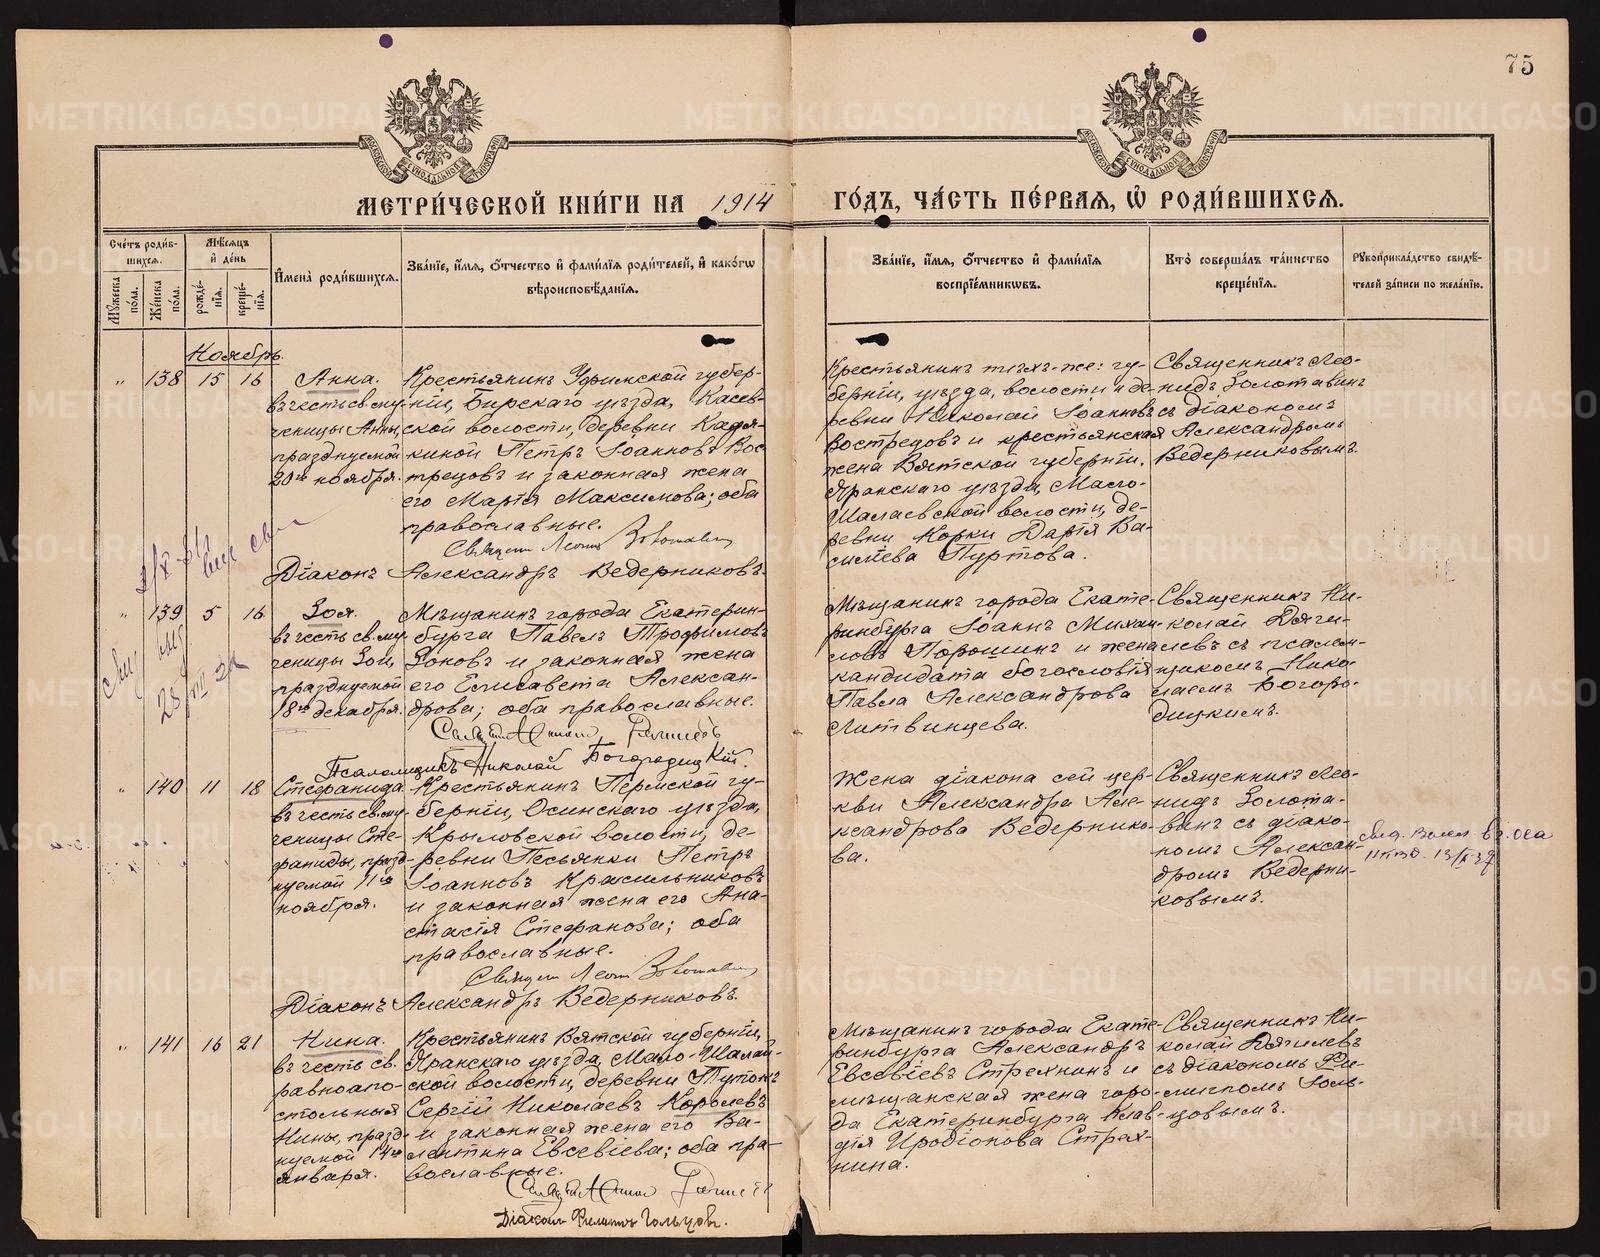 75
МЕТРИ́ЧЕСКОЙ КНИ́ГИ НА 1914 ГО́ДЪ, ЧА́СТЬ ПЕ́РВАЯ, Ѡ҆ РОДИ́ВШИХСЯ.
Сче́тъ роди́в-
шихся.
Мѣ́сяцъ
и҆ де́нь
Мꙋ́жеска
по́ла.
Же́нска
по́ла.
рожде́-
нїя.
креще́-
нїя.
И҆мена̀ роди́вшихся.
Зва́нїе, и҆́мя, ѻ҆́тчество и҆ фами́лїя роди́телей, и҆ како́гѡ
вѣроисповѣ́данїя.
Зва́нїе, и҆́мя, ѻ҆́тчество и҆ фами́лїя
воспрїе́мникѡвъ.
Кто̀ соверша́лъ та́инство
креще́нїя.
Рꙋкоприкла́дство свидѣ́-
телей за́писи по жела́нїю.
Ноябрь.
" 138 15 16
Анна.
въ честь св. му-
ченицы Анны,
празднуемой
20го ноября.
Крестьянинъ Уфимской губер-
ніи, Бирскаго уѣзда, Касев-
ской волости, деревни Кадя-
киной Петръ Іоанновъ Вос-
трецовъ и законная жена
его Марія Максимова; оба
православные.
Діаконъ Александръ Ведерниковъ.
Крестьянинъ тѣхъ-же: гу-
берніи, уѣзда, волости и де-
ревни Николай Іоанновъ
Востредовъ и крестьянская
жена Вятской губерніи,
Яранскаго уѣзда, Мало-
Шалаевской волости, де-
ревни Корки Дарія Ва-
силіева Пуртова.
Священникъ Лео-
нидъ Золотавинъ
съ діакономъ
Александромъ
Ведерниковымъ.
" 139 5 16
Зоя.
въ честь св. му-
ченицы Зои,
празднуемой
18го декабря.
Мѣщанинъ города Екатерин-
бурга Павелъ Трофимовъ
Зоновъ и законная жена
его Елисавета Алексан-
дрова; оба православные.
Псаломщикъ Николай Богородицкій.
Мѣщанинъ города Екате-
ринбурга Іоаннъ Михаи-
ловъ Порошинъ и жена
кандидата богословія
Павла Александрова
Литвинцева.
Священникъ Ни-
колай Дягилевъ
съ псалом-
щикомъ Нико-
лаемъ Богоро-
дицкимъ.
" 140 11 18
Стефанида
въ честь св. му-
ченицы Сте-
фаниды, празд-
нуемой 11го
ноября.
Крестьянинъ Пермской гу-
берніи, Осинскаго уѣзда,
Крыловской волости, де-
ревни Песьянки Петръ
Іоанновъ Красильниковъ
и законная жена его Ана-
стасія Стефанова; оба
православные.
Діаконъ Александръ Ведерниковъ.
Жена діакона сей цер-
кви Александра Але-
ксандрова Ведернико-
ва.
Священникъ Лео-
нидъ Золота-
винъ съ діако-
номъ Алексан-
дромъ Ведерни-
ковымъ.
" 141 16 21
Нина.
въ честь св.
равноапо-
стольныя
Нины, празд-
нуемой 14го
января.
Крестьянинъ Вятской губерніи,
Яранскаго уѣзда, Мало-Шалай-
ской волости, деревни
Сергій Николаевъ Королевъ
и законная жена его Ва-
лентина Евсевіева; оба пра-
вославные.
Діаконъ Филиппъ Гольцовъ.
Мѣщанинъ города Екате-
ринбурга Александръ
Евсевіевъ Стрехнинъ и
мѣщанская жена горо-
да Екатеринбурга Клав-
дія Иродіонова Стрех-
нина.
Священникъ Ни-
колай Дягилевъ
съ діакономъ Фи-
липпомъ Голь-
цовымъ.
METRIKI.GASO-URAL.RU